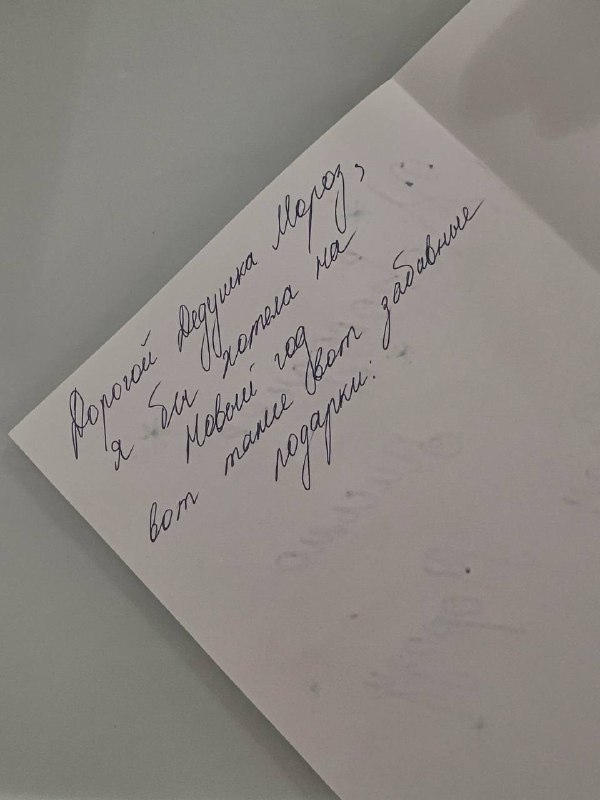 Дорогой Дедушка Мороз,
я бы хотела на
Новый год
вот такие вот забавные
подарки: